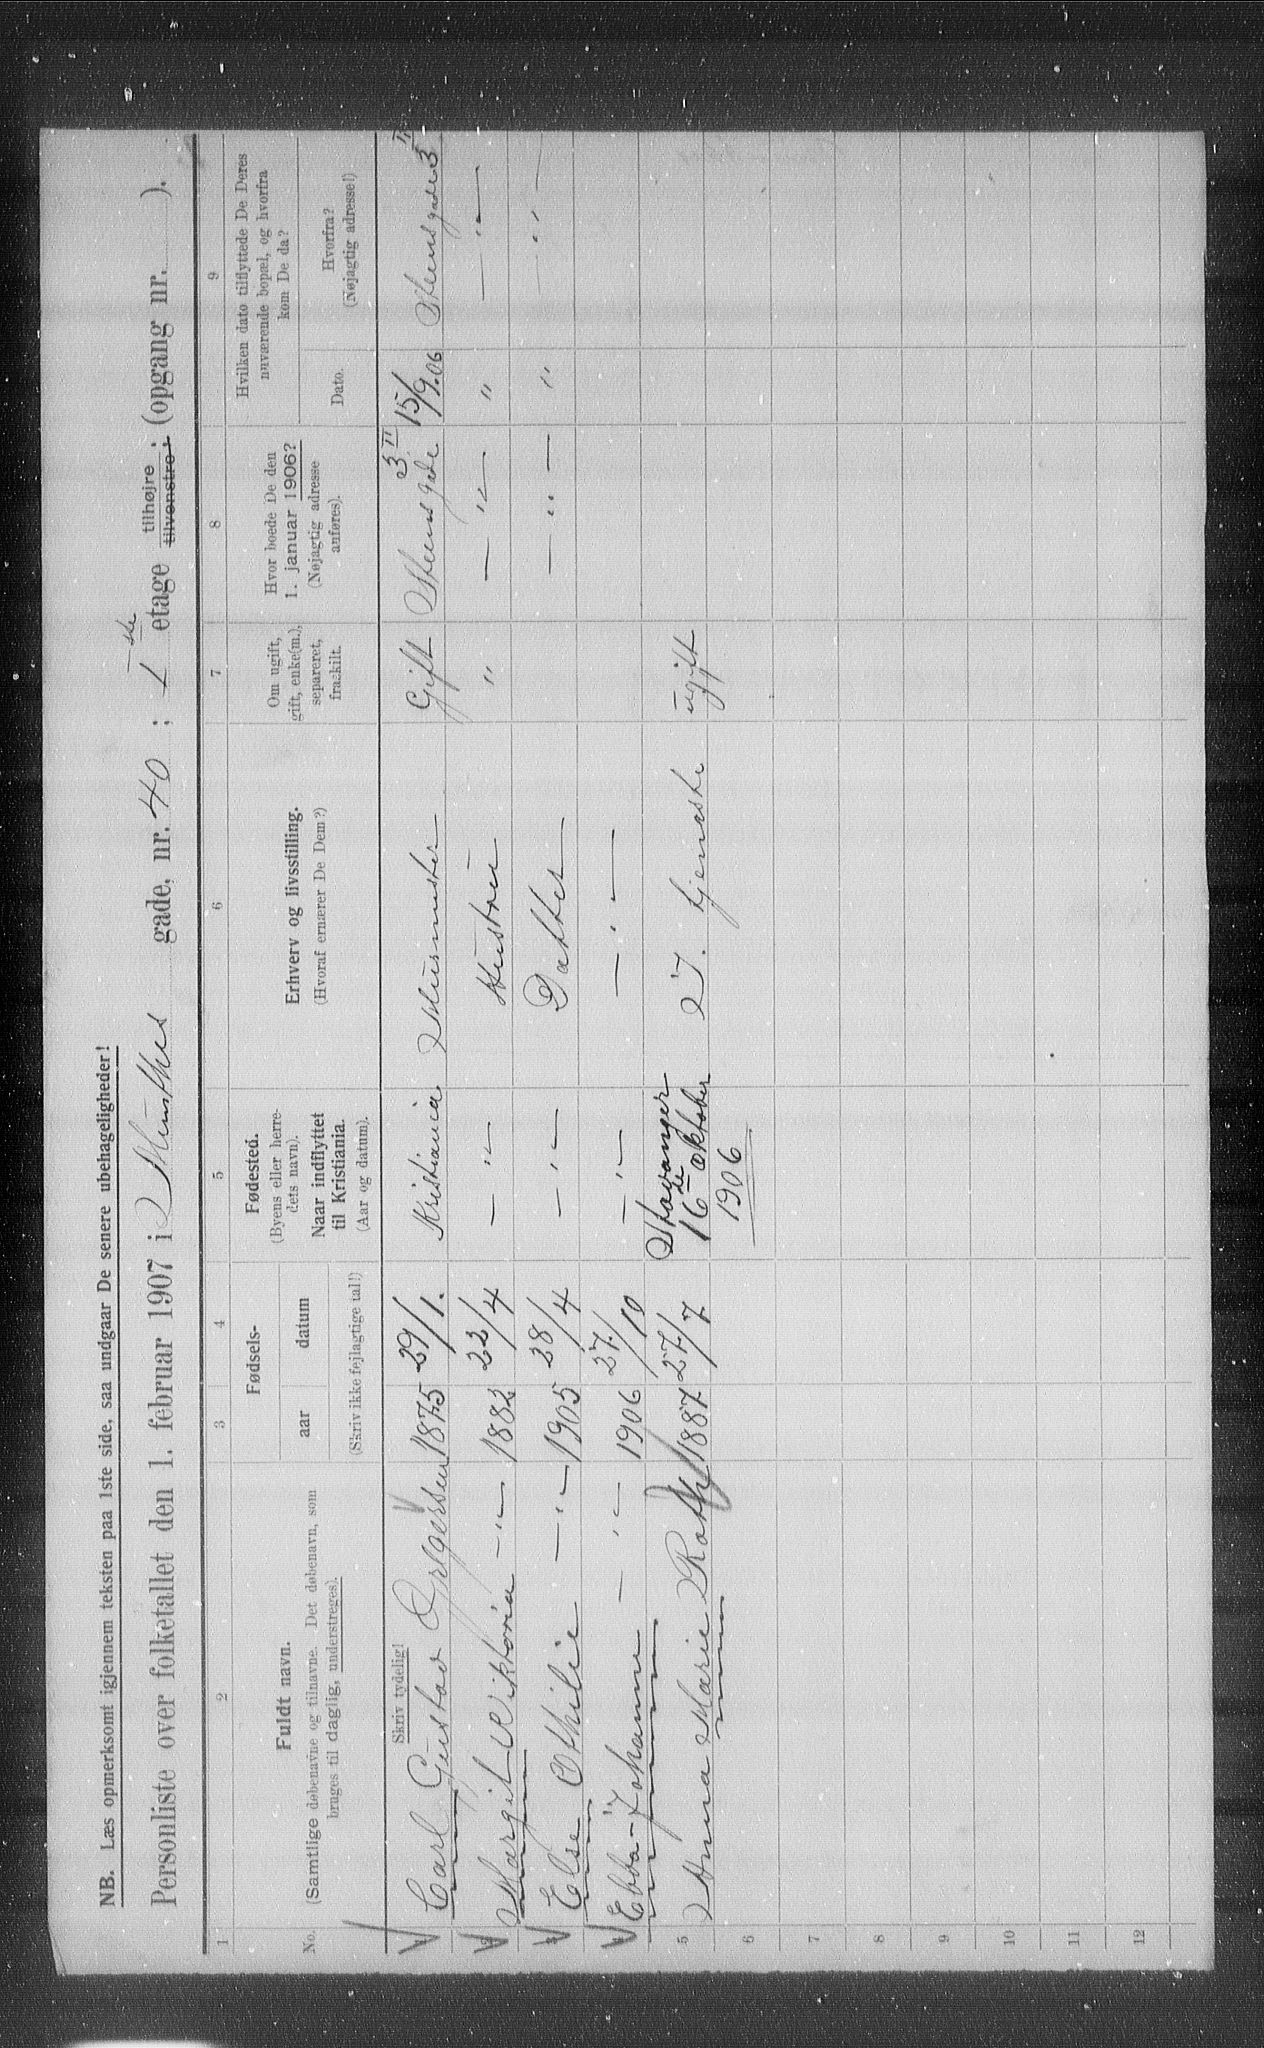 NB. Læs opmerksomt igjennem teksten paa 1ste side, saa undgaar De senere ubehageligheder!
Personliste over folketallet den 1. februar 1907 i Munthes gade, nr. 40 ; 1ste etage tilhøjre; tilvenstre; (opgang nr. ).
1 2 3 4 5 6 7 8 9
No.
Fuldt navn.
(Samtlige døbenavne og tilnavne. Det døbenavn, som
bruges til daglig, understreges).
Skriv tydelig!
Fødsels-
aar datum
(Skriv ikke fejlagtige tal!)
Fødested.
(Byens eller herre-
dets navn).
Naar indflyttet
til Kristiania.
(Aar og datum).
Erhverv og livsstilling.
(Hvoraf ernærer De Dem?)
Om ugift,
gift, enke(m.),
separeret,
fraskilt.
Hvor boede De den
1. januar 1906?
(Nøjagtig adresse
anføres).
Hvilken dato tilflyttede De Deres
nuværende bopæl, og hvorfra
kom De da?
Dato.
Hvorfra?
(Nøjagtig adresse!)
Carl Gustav Gregersen 1875 29/1. Kristiania Murmester Gift Steensgade 3 II 15/9.06 Steensgade 3 II
Margit Viktoria —"— 1882 22/4 —"— Hustru " —"— " —"—
Else Othilie —"— 1905 28/4 —"— Datter —"— " —"—
Ebba-Johanne —"— 1906 27/10 —"— —"—
5 Anna Marie Roth 1887 27/7 Stavanger 16de oktober 1906 I tjeneste ugift
6
7
8
9
10
11
12